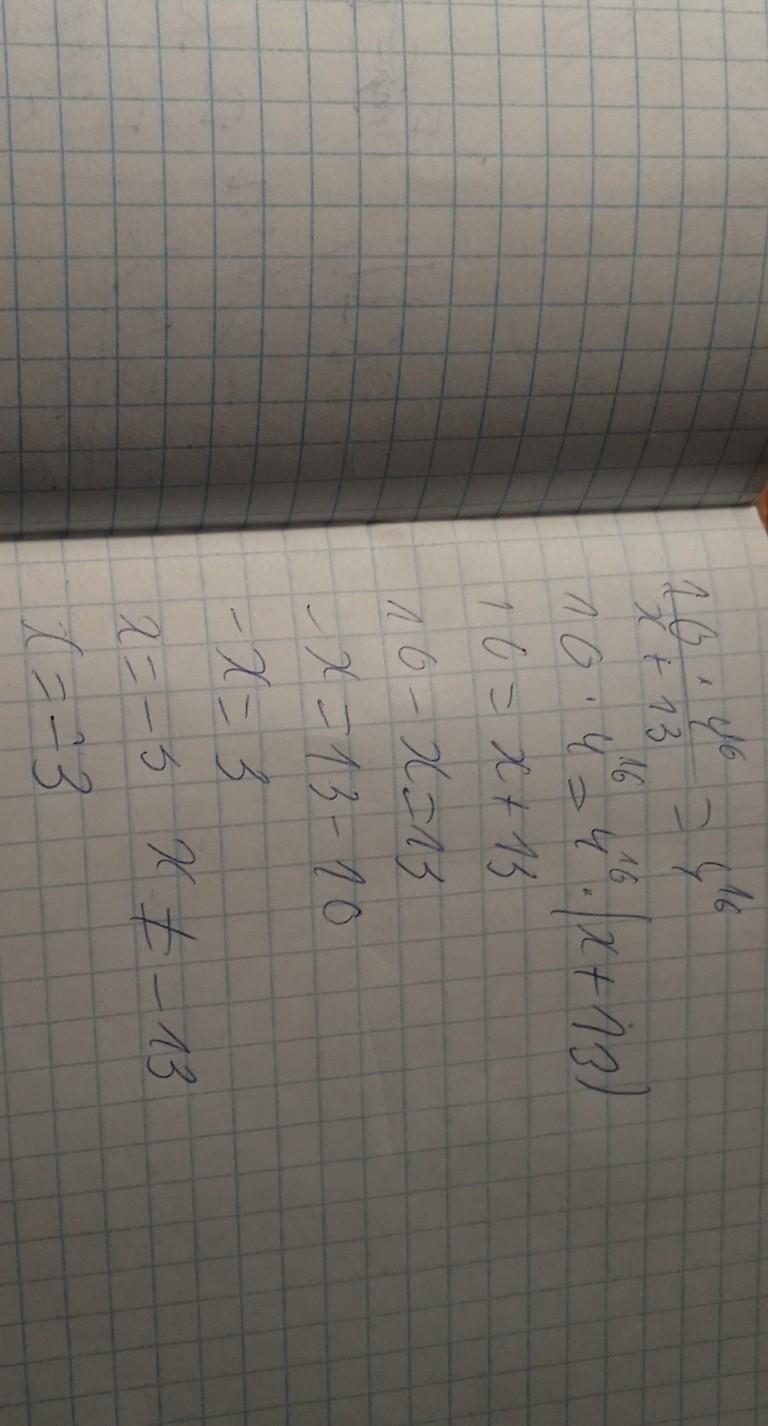 16 · 4¹⁶
x + 13 = 4¹⁶
16 · 4¹⁶ = 4¹⁶ · (x + 13)
16 = x + 13
16 - x = 13
-x = 13 - 16
-x = 3
x = -3 x ≠ -13
x = -3